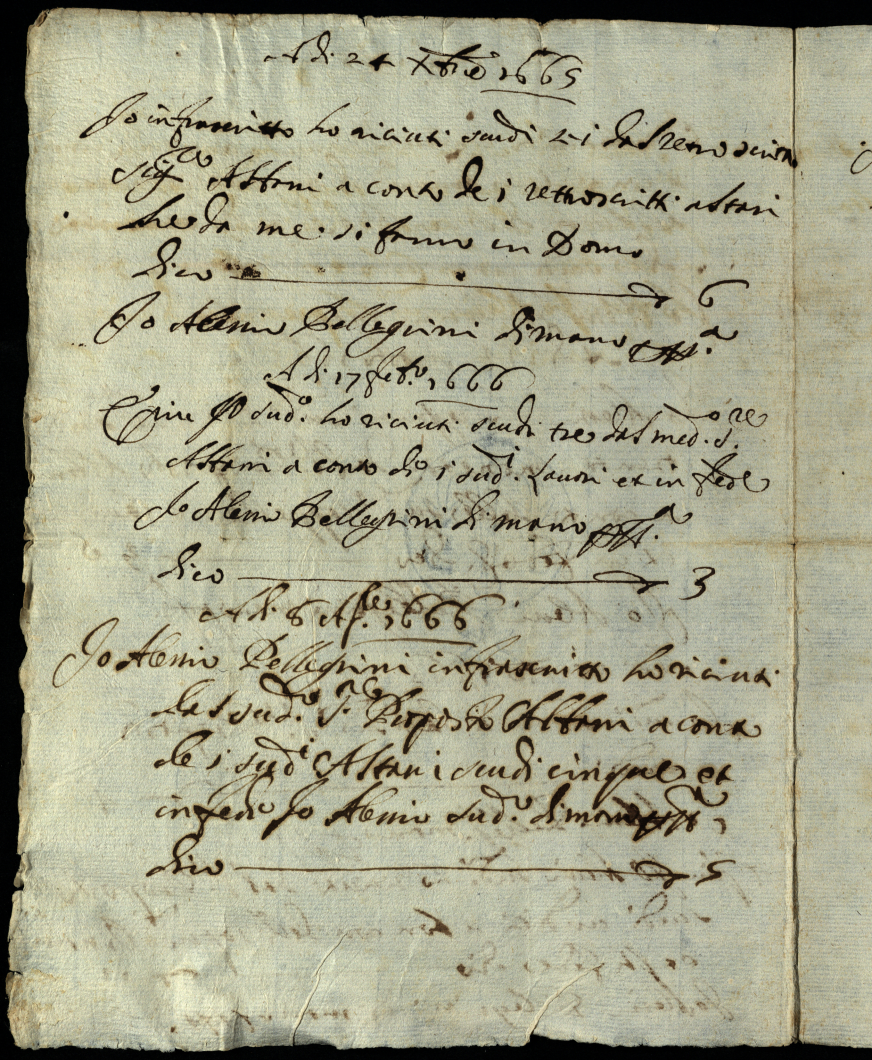 A di 24 Xbre 1665
Io infrascritto ho riciuti scudi sei dal retroscritto
Sigre Abbani a conto de i rettroscritti altari
che da me si fanno in Domo
dico 6
Io Alenio Pellegrini di mano ppa
A di 17 feb.o 1666
E piu Io sud.o ho riciuti scudi tre dal med.o S.re
Abbani a conto de i sud.i Lauori et in fede
Io Alenio Pellegrini di mano ppa
dico 3
A di 8 Ap.le 1666
Io Alenio Pellegrini infrascritto ho riciuti
dal sud.o S.re Proposto Abbani a conto
de i sud.i Altari scudi cinque et
in fede Io Alenio sud.o di mano ppa
dico 5